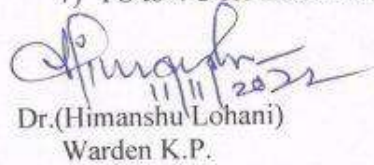 Himanshu
11/11/2022
Dr.(Himanshu Lohani)
Warden K.P.